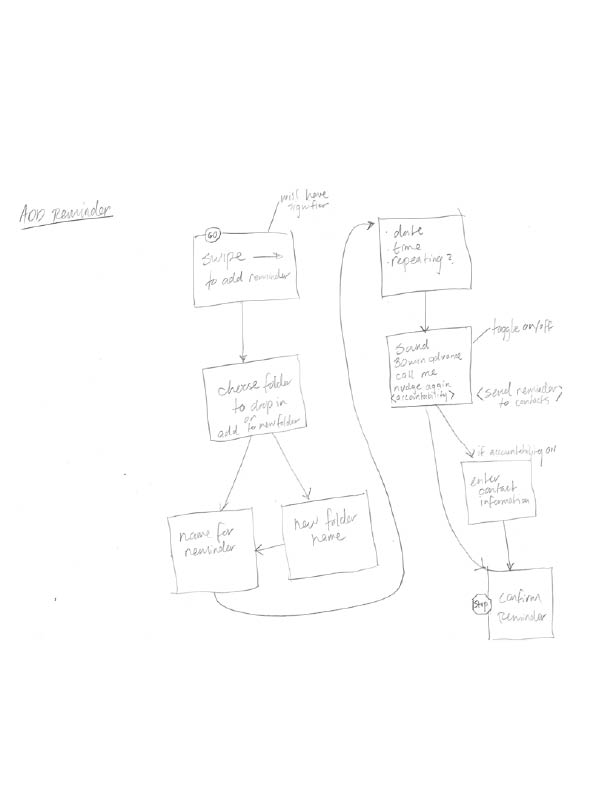 ADD Reminder
will have
signifier
GO
swipe →
to add reminder
choose folder
to drop in
or
add to new folder
name for
reminder
new folder
name
· date
· time
· repeating?
Sound
30 min advance
call me
nudge again
<accountability>
toggle on/off
<send reminder
to contacts>
if accountability on
enter
contact
information
Stop
confirm
reminder